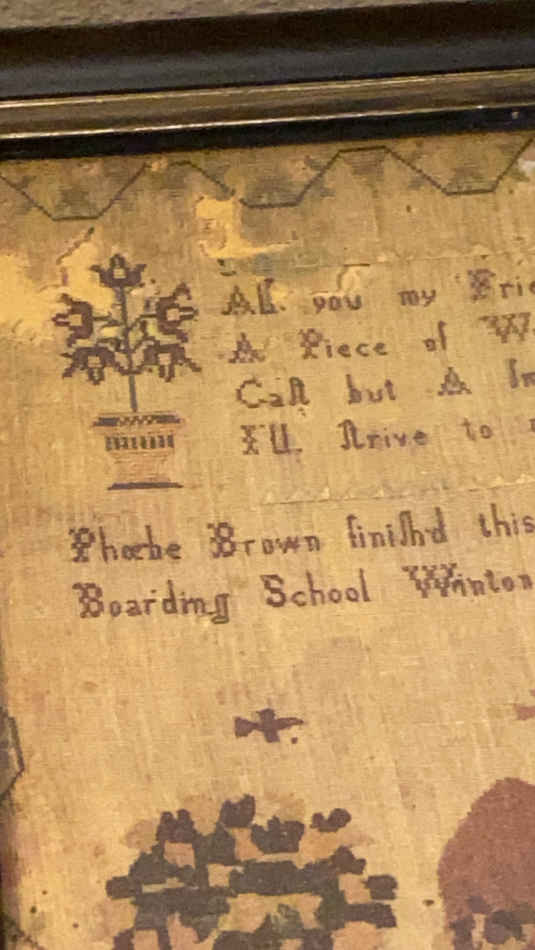 All you my Frie
A Piece of W
Caſt but A Sm
I'll ſtrive to
Phœbe Brown finiſh'd this
Boarding School Winton